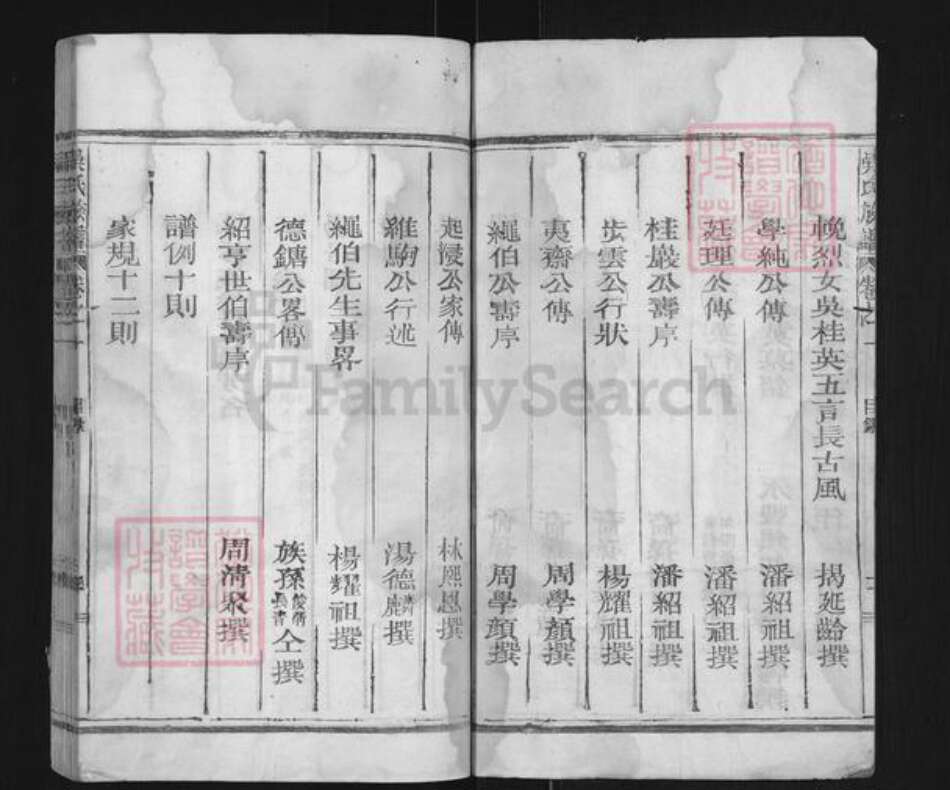 吳氏族譜 卷之一 目錄
輓烈女吳桂英五言長古風 揭延齡撰
學純公傳 潘紹祖撰
廷理公傳 潘紹祖撰
桂巖公壽序 潘紹祖撰
步雲公行狀 楊耀祖撰
夷齋公傳 周學顏撰
繩伯公壽序 周學顏撰
起浸公家傳 林熙恩撰
維駒公行述 湯德麟撰
繩伯先生事畧 楊耀祖撰
德鏞公畧傳 族孫 仝撰
紹亨世伯壽序 周清泉撰
譜例十則
家規十二則
吳氏族譜 卷之一 目錄
FamilySearch